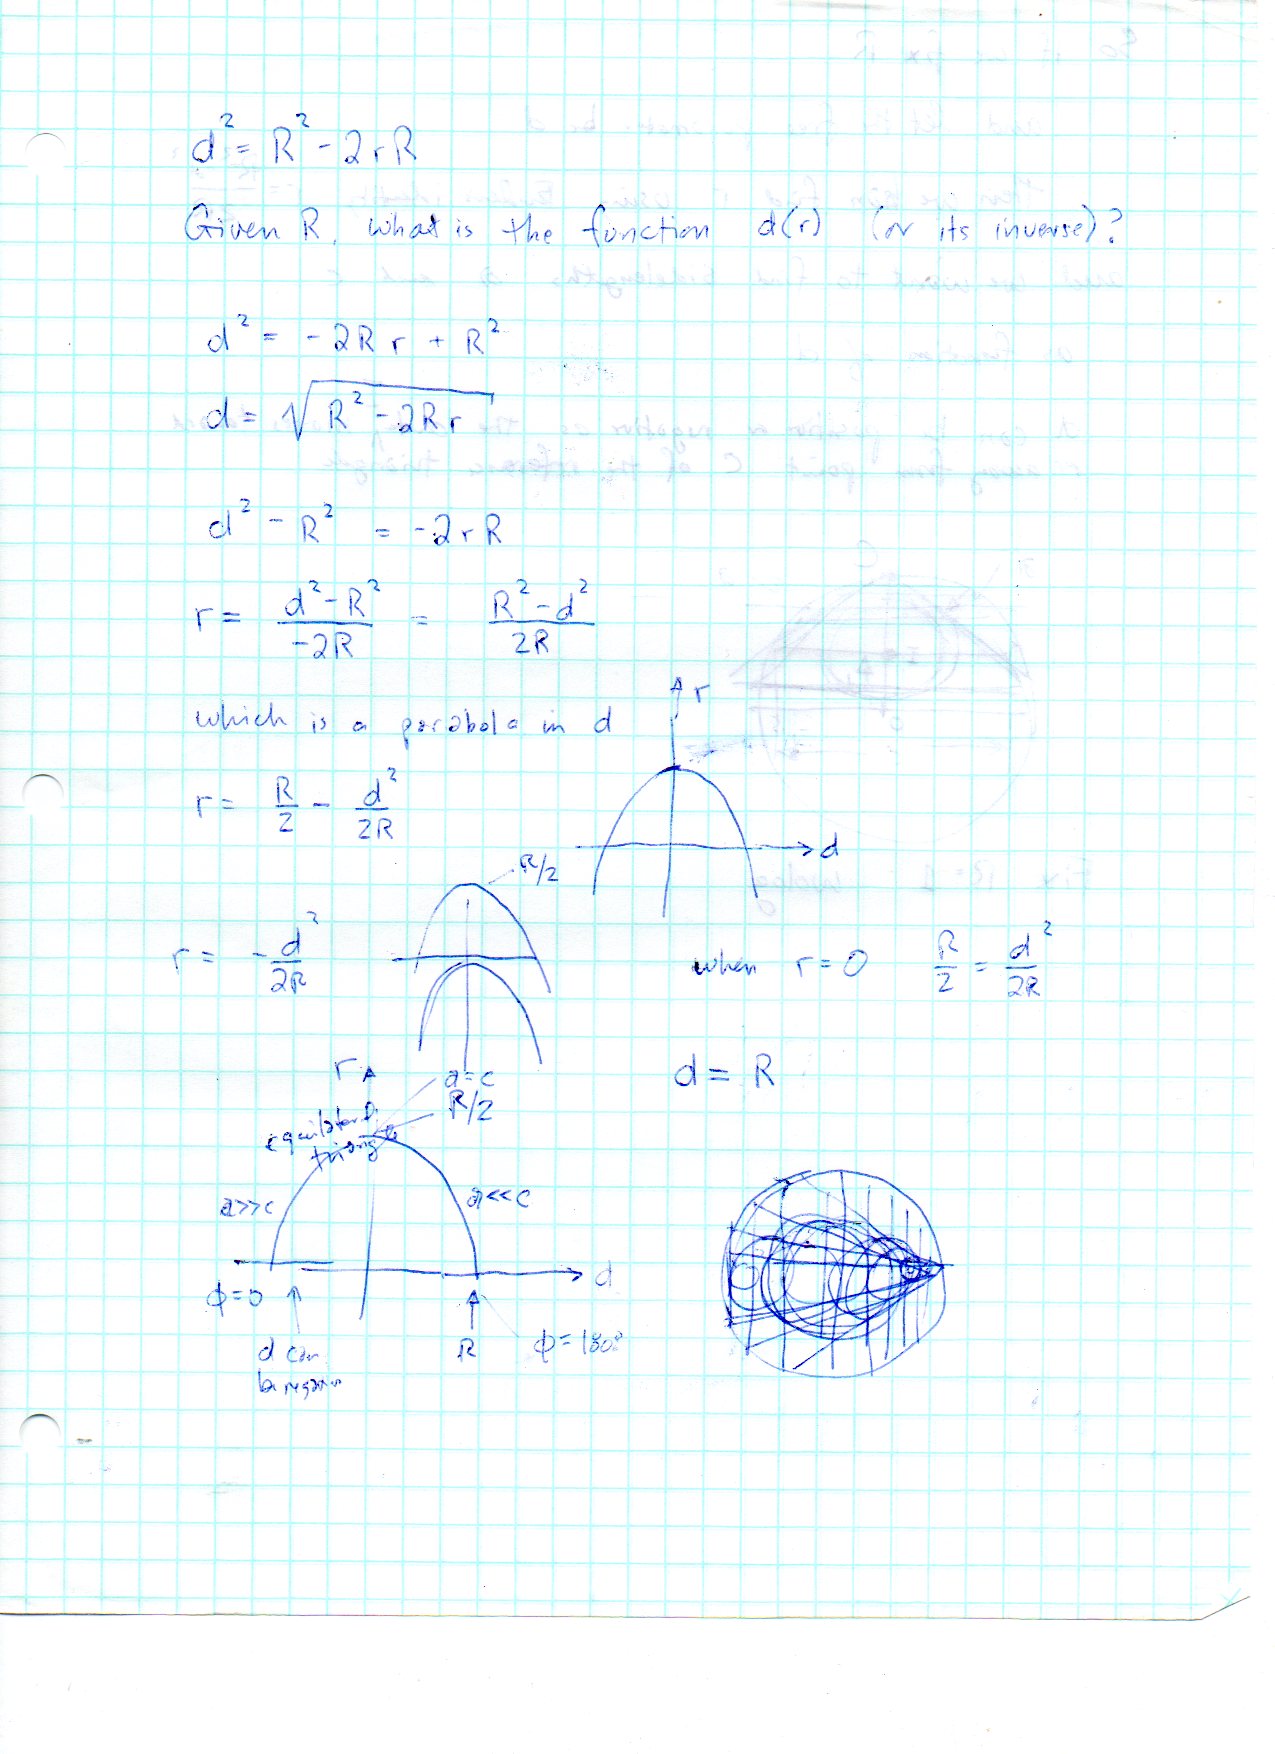 d² = R² - 2rR
Given R, what is the function d(r) (or its inverse)?
d² = -2Rr + R²
d = √(R² - 2Rr)
d² - R² = -2rR
r = (d² - R²)/(-2R) = (R² - d²)/(2R)
r
which is a parabola in d
r = R/2 - d²/2R
d
R/2
r = -d²/2R
when r = 0 R/2 = d²/2R
r
a = c
d = R
R/2
equilateral
triangle
a>>c
a<<c
d
φ=0
R
φ=180°
d can
be